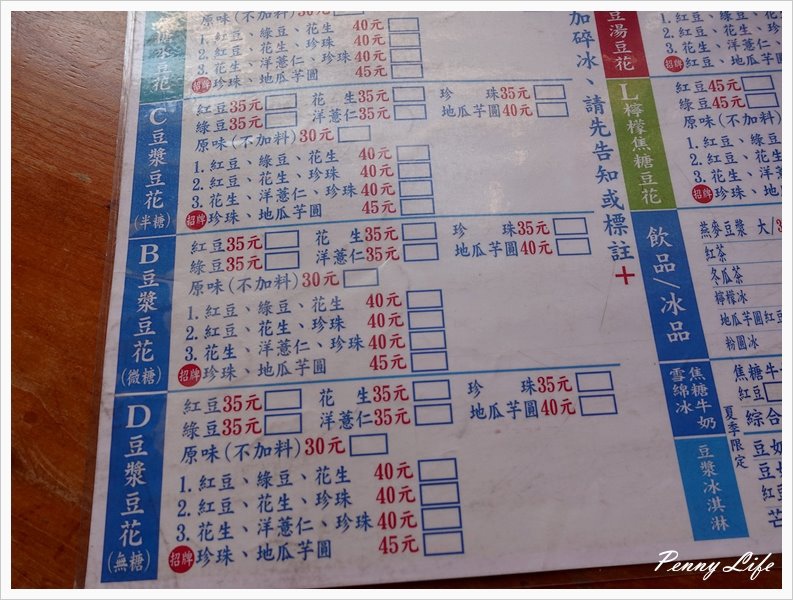 豆花
原味(不加料)30元
1. 紅豆、綠豆、花生 40元
2. 紅豆、花生、珍珠 40元
3. 花生、洋薏仁、珍珠 40元
招牌 珍珠、地瓜芋圓 45元
C 豆漿豆花 (半糖)
紅豆35元 花生35元 珍珠35元
綠豆35元 洋薏仁35元 地瓜芋圓40元
原味(不加料)30元
1. 紅豆、綠豆、花生 40元
2. 紅豆、花生、珍珠 40元
3. 花生、洋薏仁、珍珠 40元
招牌 珍珠、地瓜芋圓 45元
B 豆漿豆花 (微糖)
紅豆35元 花生35元 珍珠35元
綠豆35元 洋薏仁35元 地瓜芋圓40元
原味(不加料)30元
1. 紅豆、綠豆、花生 40元
2. 紅豆、花生、珍珠 40元
3. 花生、洋薏仁、珍珠 40元
招牌 珍珠、地瓜芋圓 45元
D 豆漿豆花 (無糖)
紅豆35元 花生35元 珍珠35元
綠豆35元 洋薏仁35元 地瓜芋圓40元
原味(不加料)30元
1. 紅豆、綠豆、花生 40元
2. 紅豆、花生、珍珠 40元
3. 花生、洋薏仁、珍珠 40元
招牌 珍珠、地瓜芋圓 45元
加碎冰、請先告知或標註+
豆湯豆花
1. 紅豆、
2. 紅豆、
3. 花生、洋
招牌 紅豆、
L 檸檬焦糖豆花
紅豆45元
綠豆45元
原味(不
1. 紅豆、
2. 紅豆、
3. 花生、
招牌 珍珠、地
飲品/冰品
燕麥豆漿 大/3
紅茶
冬瓜茶
檸檬冰
地瓜芋圓紅豆
粉圓冰
雪綿冰
焦糖牛奶
夏季限定
焦糖牛
紅豆
綜合
豆漿冰淇淋
豆奶
豆
紅豆
芒
Penny Life